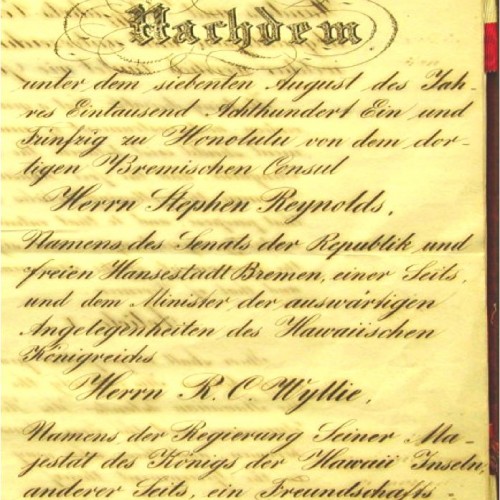 Nachdem
unter dem siebenten August des Jah-
res Eintausend Achthundert Ein und
Fünfzig zu Honolulu von dem dor-
tigen Bremischen Consul
Herrn Stephen Reynolds,
Namens des Senats der Republik und
freien Hansestadt Bremen, einer Seits,
und dem Minister der auswärtigen
Angelegenheiten des Hawaiischen
Königreichs
Herrn R. C. Wyllie,
Namens der Regierung Seiner Ma-
jestät des Königs der Hawaii Inseln,
anderer Seits, ein Freundschafts-